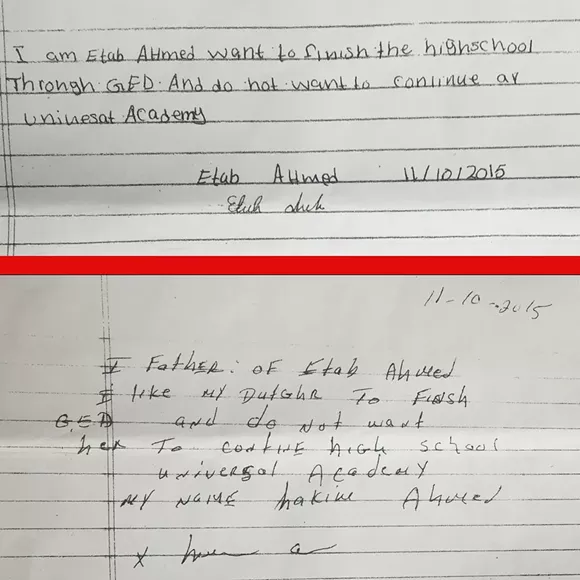 I am Etab Ahmed want to finish the highschool
Through GED. And do not want to continue at
Uninesat Academy
Etab Ahmed 11/10/2015
11-10-2015
I Father: OF Etab Ahmed
I like MY DutGhR To Finsh
G.ED and do Not want
her To contine high school
universal Academy
MY NAME hakim Ahmed
x